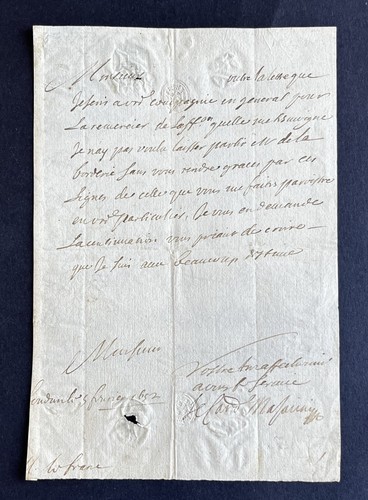 Monsieur outre la lettre que
Jescris a vre compagnie en general pour
La remercier de laffon quelle me tesmoigne
Je nay pas voulu laisser partir le Sr de la
borderie sans vous rendre graces par ces
lignes de celle que vous me faites paroistre
en vre particulier, Je vous en demande
La continuation vous priant de croire
que Je suis avec beaucoup destime
Monsieur
Vostre
a vous
le Card. Mazarini
le franc